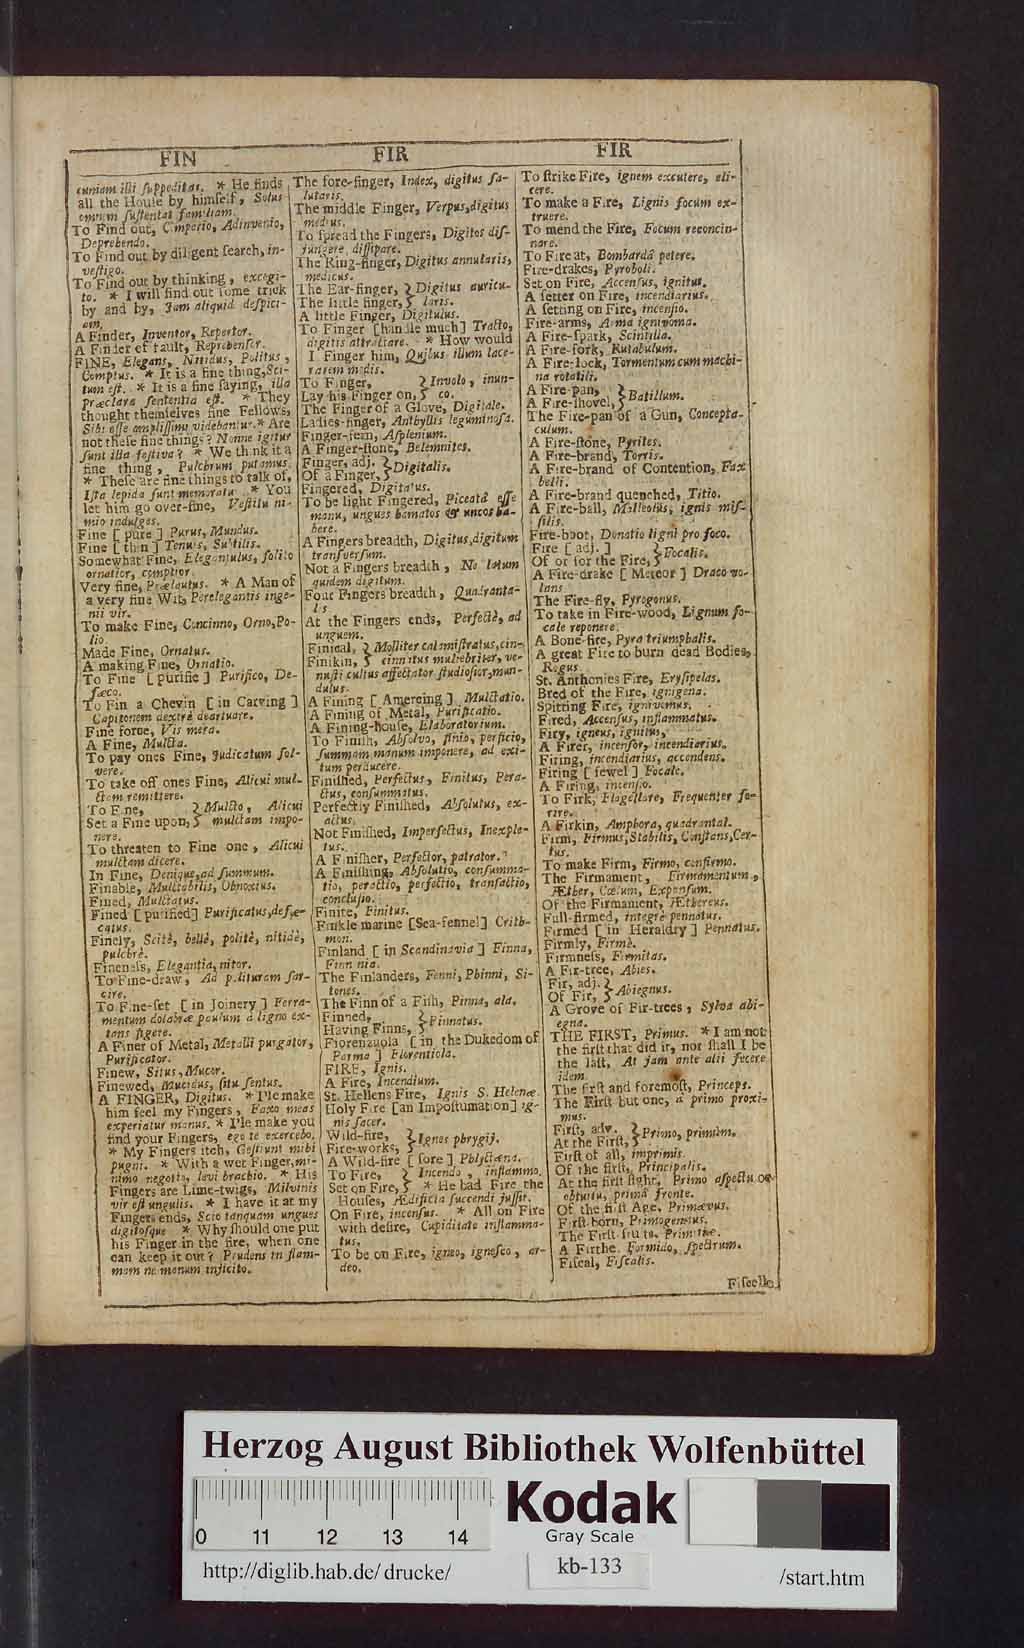 FIN
FIR
FIR
cuniam illi ſuppeditat. * He finds
all the Houſe by himſelf, Solus
omnem ſuſtentat familiam.
To Find out, Comperio, Adinvenio,
Deprehendo.
To Find out by diligent ſearch, in-
veſtigo.
To Find out by thinking, excogi-
to. * I will find out ſome trick
by and by, Jam aliquid deſpici-
am.
A Finder, Inventor, Repertor.
A Finder of fault, Reprehenſor.
FINE, Elegans, Nitidus, Politus,
Comptus. * It is a fine thing, Sci-
tum eſt. * It is a fine ſaying, illa
præclara ſententia eſt. * They
thought themſelves fine Fellows,
Sibi eſſe ampliſſimi videbantur. * Are
not theſe fine things? Nonne igitur
ſunt illa feſtiva? * We think it a
fine thing, Pulchrum putamus.
* Theſe are fine things to talk of,
Iſta lepida ſunt memoratu. * You
let him go over-fine, Veſtitu ni-
mio indulges.
Fine [ pure ] Purus, Mundus.
Fine [ thin ] Tenuis, Subtilis.
Somewhat Fine, Elegantulus, ſolito
ornatior, comptior.
Very fine, Prælautus. * A Man of
a very fine Wit, Perelegantis inge-
nii vir.
To make Fine, Concinno, Orno, Po-
lio.
Made Fine, Ornatus.
A making Fine, Ornatio.
To Fine [ purifie ] Purifico, De-
fæco.
To Fin a Chevin [ in Carving ]
Capitonem dextrè deartuare.
Fine force, Vis mera.
A Fine, Mulcta.
To pay ones Fine, Judicatum ſol-
vere.
To take off ones Fine, Alicui mul-
ctam remittere.
To Fine, } Mulcto, Alicui
Set a Fine upon, } mulctam impo-
nere.
To threaten to Fine one, Alicui
mulctam dicere.
In Fine, Denique, ad ſummum.
Finable, Mulctabilis, Obnoxius.
Fined, Mulctatus.
Fined [ purified] Purificatus, defæ-
catus.
Finely, Scitè, bellè, politè, nitidè,
pulchrè.
Fineneſs, Elegantia, nitor.
To Fine-draw, Ad polituram ſar-
cire.
To Fine-ſet [ in Joinery ] Ferra-
mentum dolabræ paulum à ligno ex-
tans figere.
A Finer of Metal, Metalli purgator,
Purificator.
Finew, Situs, Mucor.
Finewed, Mucidus, ſitu ſentus.
A FINGER, Digitus. * I'le make
him feel my Fingers, Faxo meas
experiatur manus. * I'le make you
find your Fingers, ego te exercebo.
* My Fingers itch, Geſtiunt mihi
pugni. * With a wet Finger, mi-
nimo negotio, levi brachio. * His
Fingers are Lime-twigs, Milvinis
vir eſt ungulis. * I have it at my
Fingers ends, Scio tanquam ungues
digitoſque * Why ſhould one put
his Finger in the fire, when one
can keep it out? Prudens in flam-
mam ne manum injicito.
The fore-finger, Index, digitus ſa-
lutaris.
The middle Finger, Verpus, digitus
medius.
To ſpread the Fingers, Digitos diſ-
jungere, diſſipare.
The Ring-finger, Digitus annularis,
medicus.
The Ear-finger, } Digitus auricu-
The little finger, } laris.
A little Finger, Digitulus.
To Finger [handle much] Tracto,
digitis attrectare. * How would
I Finger him, Quibus illum lace-
rarem modis.
To Finger, } Involo, inun-
Lay his Finger on, } co.
The Finger of a Glove, Digitale.
Ladies-finger, Anthyllis leguminoſa.
Finger-fern, Aſplenium.
A Finger-ſtone, Belemnites.
Finger, adj. } Digitalis.
Of a Finger, }
Fingered, Digitatus.
To be light Fingered, Piceatâ eſſe
manu, ungues hamatos & uncos ha-
bere.
A Fingers breadth, Digitus, digitum
tranſverſum.
Not a Fingers breadth, Ne latum
quidem digitum.
Four Fingers breadth, Quadranta-
lis
At the Fingers ends, Perfectè, ad
unguem.
Finical, } Molliter calamiſtratus, cin-
Finikin, } cinnatus muliebriter, ve-
nuſti cultus affectator ſtudioſior, mun-
dulus.
A Fining [ Amercing ] Mulctatio.
A Fining of Metal, Purificatio.
A Fining-houſe, Elaboratorium.
To Finiſh, Abſolvo, finio, perficio,
ſummam manum imponere, ad exi-
tum perducere.
Finiſhed, Perfectus, Finitus, Pera-
ctus, conſummatus.
Perfectly Finiſhed, Abſolutus, ex-
actus.
Not Finiſhed, Imperfectus, Inexple-
tus.
A Finiſher, Perfector, patrator.
A Finiſhing, Abſolutio, conſumma-
tio, peractio, perfectio, tranſactio,
concluſio.
Finite, Finitus.
Finkle marine [Sea-fennel] Crith-
mon.
Finland [ in Scandinavia ] Finna,
Finnonia.
The Finlanders, Fenni, Phinni, Si-
tones.
The Finn of a Fiſh, Pinna, ala.
Finned, } Pinnatus.
Having Finns, }
Fiorenzuola [ in the Dukedom of
Parma ] Florentiola.
FIRE, Ignis.
A Fire, Incendium.
St. Hellens Fire, Ignis S. Helenæ
Holy Fire [an Impoſtumation] ig-
nis ſacer.
Wild-fire, } Ignes phrygii.
Fire-works, }
A Wild-fire [ ſore ] Phlyctæna.
To Fire, } Incendo, inflammo.
Set on Fire, } * He bad Fire the
Houſes, Ædificia ſuccendi juſſit.
On Fire, incenſus. * All on Fire
with deſire, Cupiditate inflamma-
tus.
To be on Fire, igneo, igneſco, ar-
deo.
To ſtrike Fire, ignem excutere, eli-
cere.
To make a Fire, Lignis focum ex-
truere.
To mend the Fire, Focum reconcin-
nare.
To Fire at, Bombardâ petere.
Fire-drakes, Pyroboli.
Set on Fire, Accenſus, ignitus.
A ſetter on Fire, incendiarius.
A ſetting on Fire, incenſio.
Fire-arms, Arma ignivoma.
A Fire-ſpark, Scintilla.
A Fire-fork, Rutabulum.
A Fire-lock, Tormentum cum machi-
na rotatili.
A Fire-pan, } Batillum.
A Fire-ſhovel, }
The Fire-pan of a Gun, Concepta-
culum.
A Fire-ſtone, Pyrites.
A Fire-brand, Torris.
A Fire-brand of Contention, Fax
belli.
A Fire-brand quenched, Titio.
A Fire-ball, Malleolus, ignis miſ-
ſilis.
Fire-boot, Donatio ligni pro foco.
Fire [ adj. ] } Focalis.
Of or for the Fire, }
A Fire-drake [ Meteor ] Draco vo-
lans
The Fire-fly, Pyrogonus.
To take in Fire-wood, Lignum fo-
cale reponere.
A Bone-fire, Pyra triumphalis.
A great Fire to burn dead Bodies,
Rogus
St. Anthonies Fire, Eryſipelas.
Bred of the Fire, ignigena.
Spitting Fire, ignivomus.
Fired, Accenſus, inflammatus.
Firy, igneus, ignitus,
A Firer, incenſor, incendiarius.
Firing, incendiarius, accendens.
Firing [ fewel ] Focale.
A Firing, incenſio.
To Firk, Flagellare, Frequenter fe-
rire.
A Firkin, Amphora, quadrantal.
Firm, Firmus, Stabilis, Conſtans, Cer-
tus.
To make Firm, Firmo, confirmo.
The Firmament, Firmamentum,
Æther, Cœlum, Expanſum.
Of the Firmament, Æthereus.
Full-firmed, integrè pennatus.
Firmed [ in Heraldry ] Pennatus.
Firmly, Firmè.
Firmneſs, Firmitas.
A Fir-tree, Abies.
Fir, adj. } Abiegnus.
Of Fir, }
A Grove of Fir-trees, Sylva abi-
egna.
THE FIRST, Primus. * I am not
the firſt that did it, nor ſhall I be
the laſt, At jam ante alii fecere
idem.
The firſt and foremoſt, Princeps.
The Firſt but one, à primo proxi-
mus.
Firſt, adv. } Primo, primùm.
At the Firſt, }
Firſt of all, imprimis.
Of the firſt, Principalis.
At the firſt ſight, Primo aſpectu &
obtuitu, primâ fronte.
Of the firſt Age, Primævus.
Firſt-born, Primogenitus.
The Firſt-fruits, Primitiæ.
A Firthe. Formido, ſpectrum.
Fiſcal, Fiſcalis.
Fiſcello
Herzog August Bibliothek Wolfenbüttel
0 11 12 13 14
Kodak
Gray Scale
kb-133
http://diglib.hab.de/drucke/
/start.htm